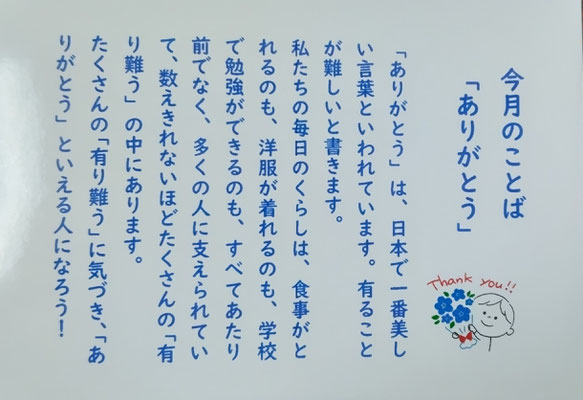 今月のことば
「ありがとう」
「ありがとう」は、日本で一番美し
い言葉といわれています。有ること
が難しいと書きます。
私たちの毎日のくらしは、食事がと
れるのも、洋服が着れるのも、学校
で勉強ができるのも、すべてあたり
前でなく、多くの人に支えられてい
て、数えきれないほどたくさんの「有
り難う」の中にあります。
たくさんの「有り難う」に気づき、「あ
りがとう」といえる人になろう！
Thank you!!